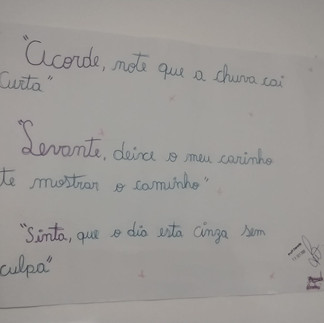 "Acorde, note que a chuva cai
curta"
"Levante, deixe o meu carinho
te mostrar o caminho"
"Sinta, que o dia esta cinza sem
culpa"